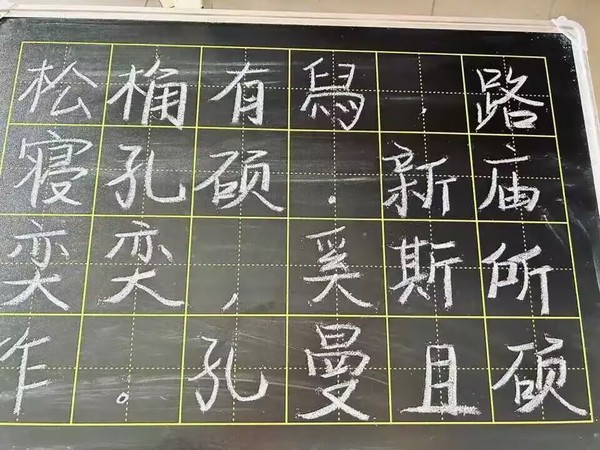 松桷有舄，路
寝孔硕．新庙
奕奕，奚斯所
作。孔曼且硕